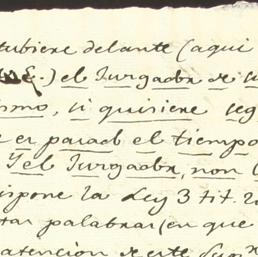 tubiere delante (aqui
el Jurgador de
ismo, si quisiere seg
e er parad el tiempo
Y el Jurgador, non
ispone la Ley 3 tit. 2
tar palabras (en que
atencion de este